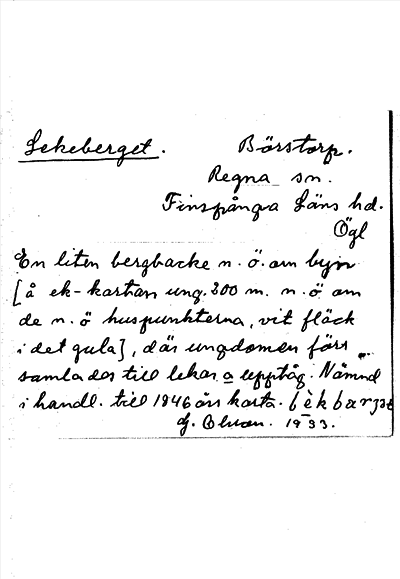 Lekeberget. Börstorp.
Regna sn.
Finspånga Läns hd.
Ögl
En liten bergbacke n.ö. om byn
[å ek-kartan ung. 300 m. n.ö om
de n.ö huspunkterna, vit fläck
i det gula], där ungdomen förr
samlades till lekar o upptåg. Nämnd
i handl. till 1846 års karta.
1933.